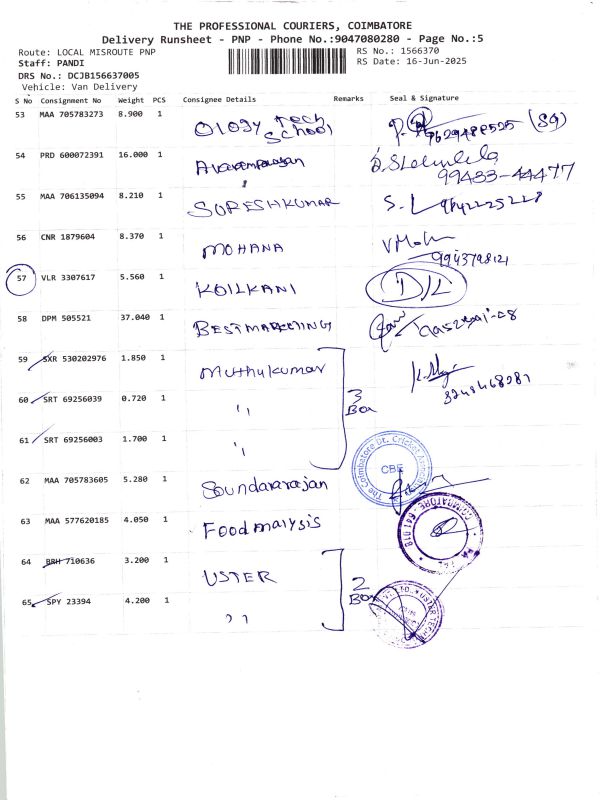 THE PROFESSIONAL COURIERS, COIMBATORE
Delivery Runsheet - PNP - Phone No.:9047080280 - Page No.:5
Route: LOCAL MISROUTE PNP
RS No.: 1566370
Staff: PANDI
RS Date: 16-Jun-2025
DRS No.: DCJB156637005
Vehicle: Van Delivery
S No Consignment No Weight PCS Consignee Details Remarks Seal & Signature
53 MAA 705783273 8.900 1 OLOGY Tech School
54 PRD 600072391 16.000 1 99433-44477
55 MAA 706135094 8.210 1 SURESHKUMAR
56 CNR 1879604 8.370 1 MOHANA
57 VLR 3307617 5.560 1 KOILKANI D/L
58 DPM 505521 37.040 1 BESTMARKETING
59 SXR 530202976 1.850 1 Muthukumar
60 SRT 69256039 0.720 1 " 3 Box
61 SRT 69256003 1.700 1 "
The Coimbatore Dt. Cricket
CBE
62 MAA 705783605 5.280 1 Soundararajan
63 MAA 577620185 4.050 1 Food analysis
COIMBATORE - 641 018
64 BRH 710636 3.200 1 USTER
65 SPY 23394 4.200 1 " 2 Box